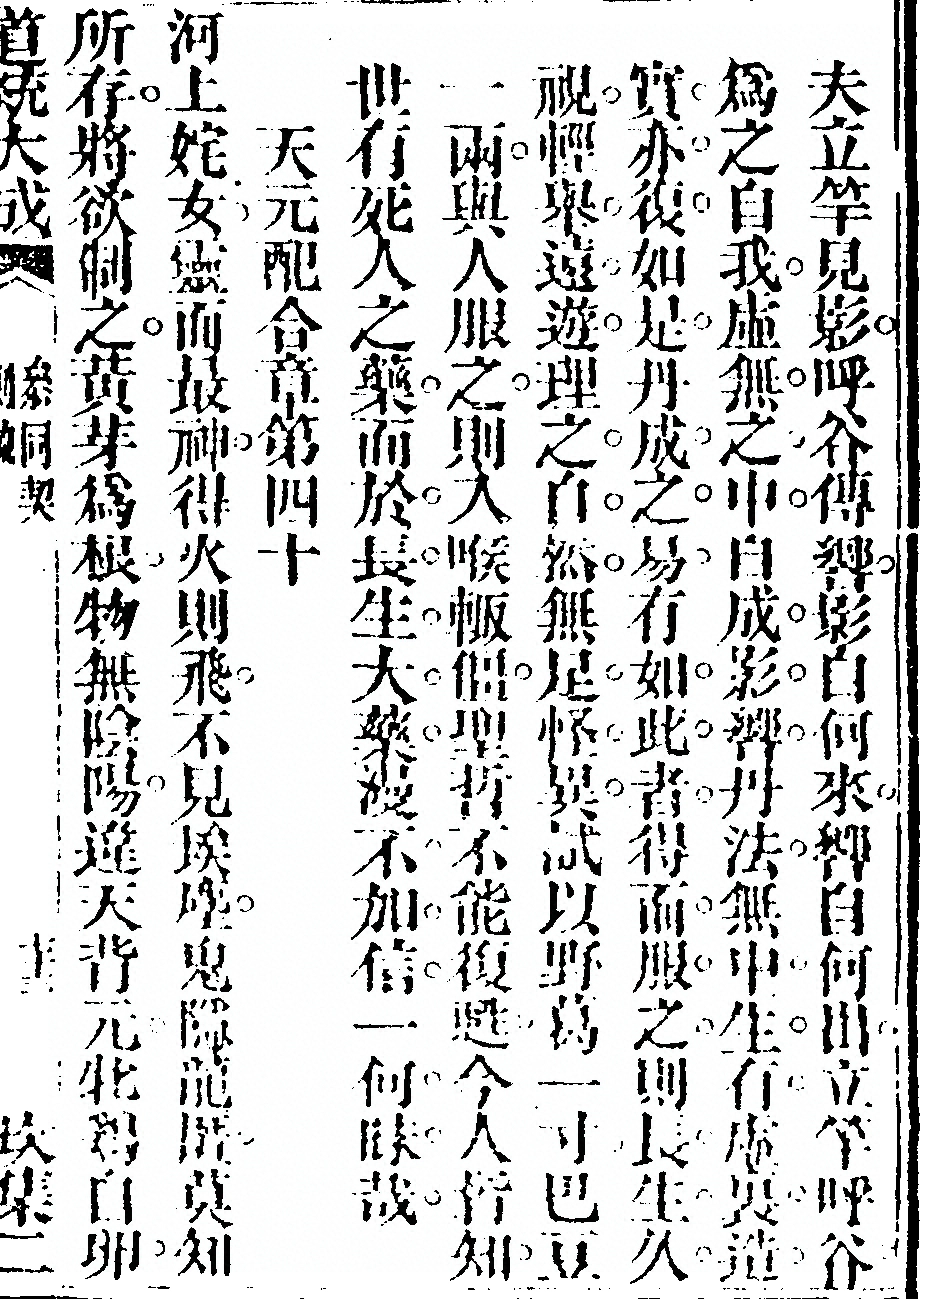 夫立竿見影呼谷傳響影自何來響自何出立竿呼谷
爲之自我虛無之中自成影響丹法無中生有虛裏造
實亦復如是丹成之易有如此者得而服之則長生久
視輕舉遠遊理之自然無足怪異試以野葛一寸巴豆
一兩與人服之則入喉輒僵聖哲不能復甦今人皆知
世有死人之藥而於長生大藥漫不加信一何昧哉
天元配合章第四十
河上姹女靈而最神得火則飛不見埃塵鬼隱龍匿莫知
所存將欲制之黃芽爲根物無陰陽違天背元牝鷄自卵
道統大成
參同契
坎集二